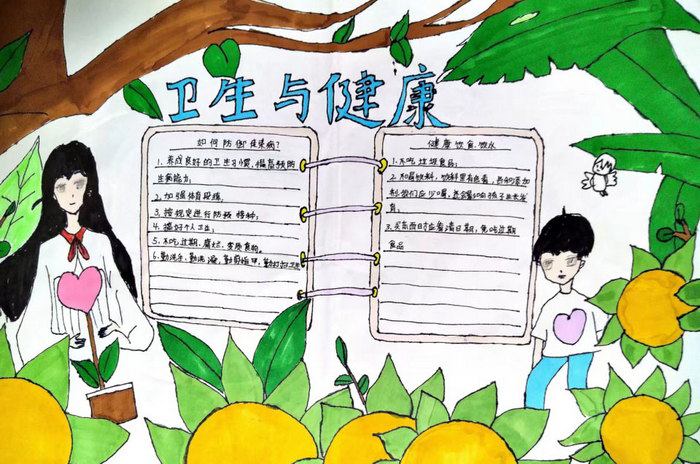 卫生与健康
如何防御疾病?
1、养成良好的卫生习惯,提高预防
生病能力;
2、加强体育锻炼;
3、按规定进行防疫接种;
4、搞好个人卫生;
5、不吃过期、腐烂、变质食物;
6、勤洗手、勤洗澡、勤剪指甲、勤打扫卫生
健康饮食.饮水
1、不吃垃圾食品;
2、和喝饮料,饮料里有色素、
剂,我们应少喝,
育;
3、买东西时应看清日期,免吃过期
食品